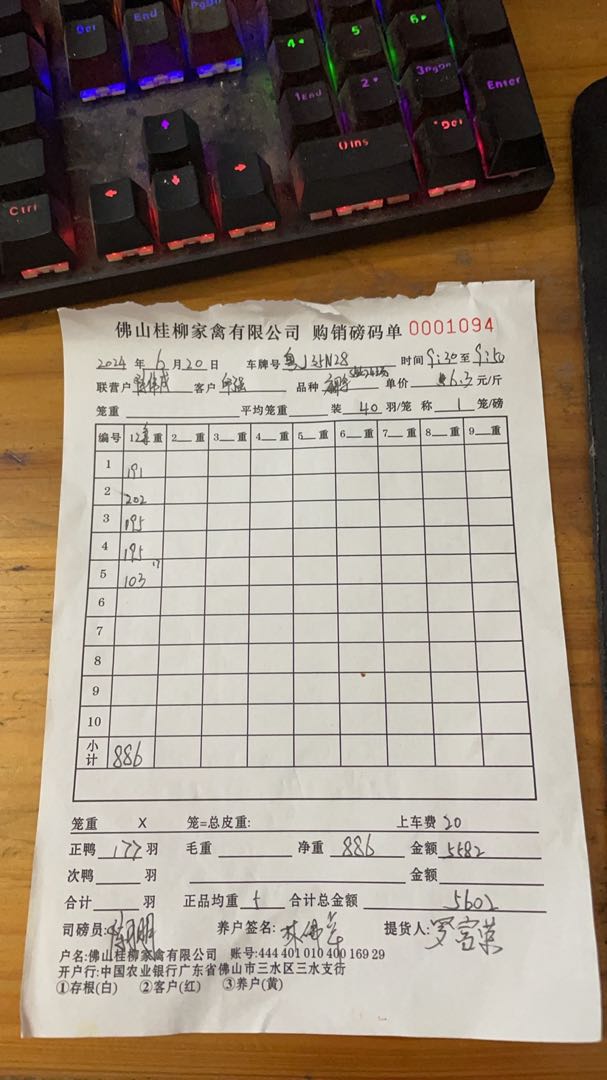 Del End PgDn
4 5 6
1End 2 3PgDn Enter
0Ins Del
Ctrl
佛山桂柳家禽有限公司 购销磅码单 0001094
2024 年 6 月 20 日 车牌号 粤J35N28 时间 9:30 至 9:50
联营户 客户 品种 单价 6.3 元/斤
笼重 平均笼重 装 40 羽/笼 称 1 笼/磅
编号 1 重 2 重 3 重 4 重 5 重 6 重 7 重 8 重 9 重
1 191
2 202
3 195
4 195
5 103 17
6
7
8
9
10
小计 886
笼重 X 笼=总皮重: 上车费 20
正鸭 177 羽 毛重 净重 886 金额 5582
次鸭 羽 金额
合计 羽 正品均重 5 合计总金额 5602
司磅员: 养户签名: 提货人:
户名:佛山桂柳家禽有限公司 账号:444 401 010 400 169 29
开户行:中国农业银行广东省佛山市三水区三水支街
①存根(白) ②客户(红) ③养户(黄)